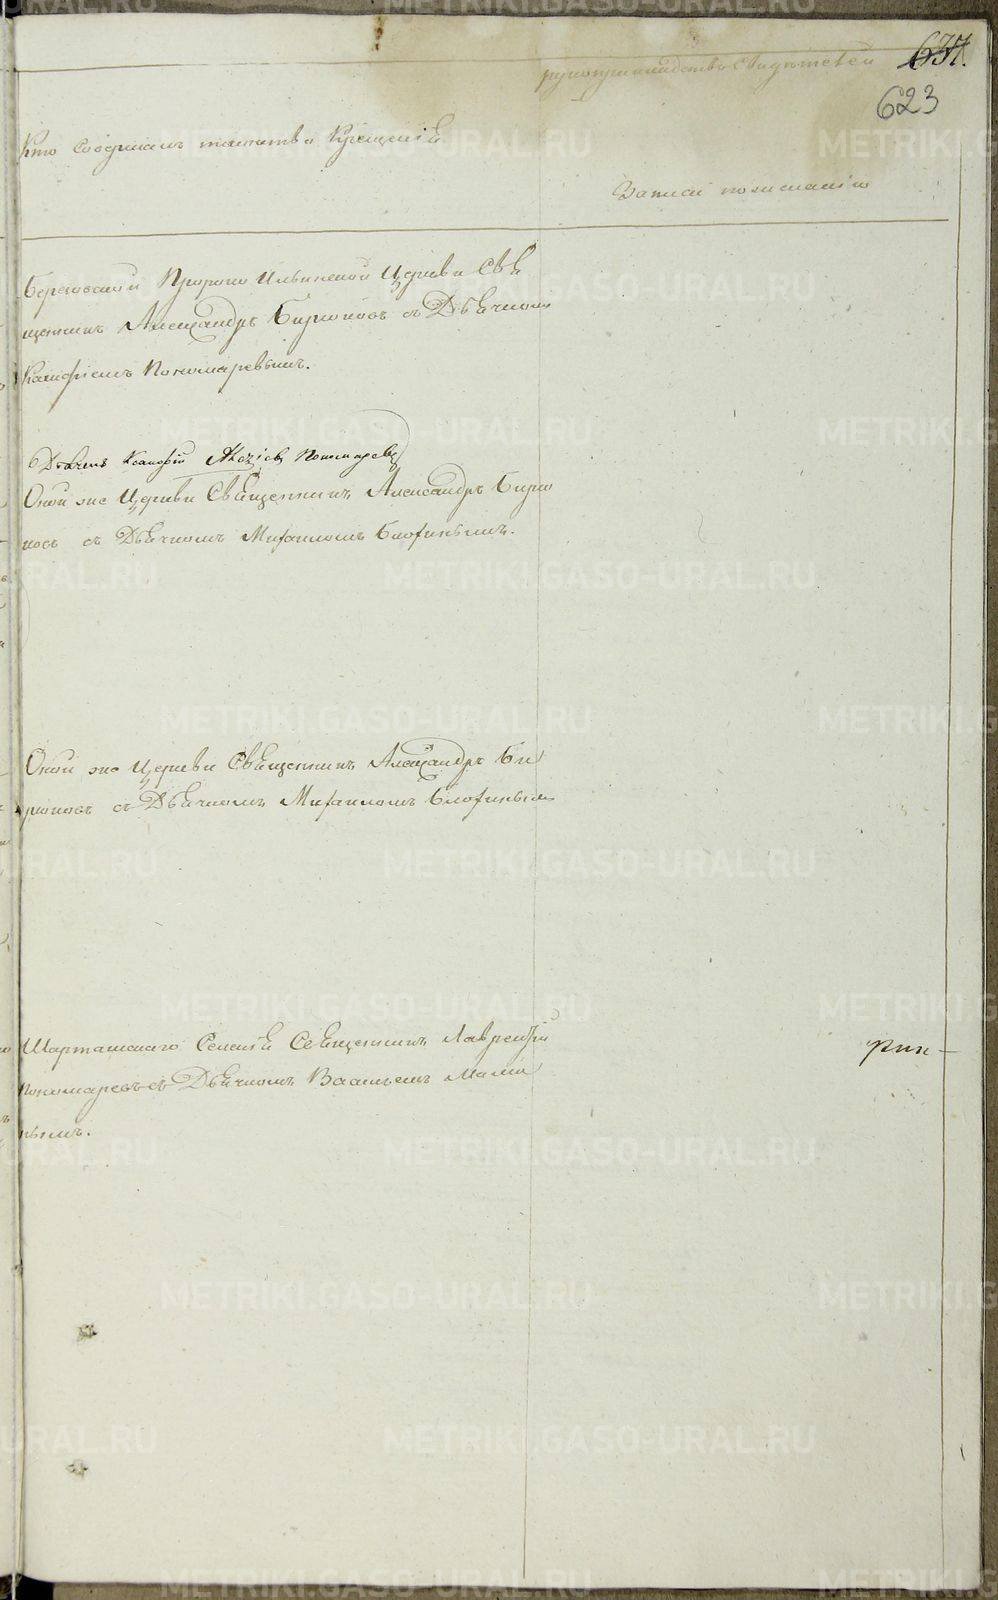 637.
рукоприкладство свидѣтелей
623
Кто совершалъ таинство Крещенія
Записи по желанію
Березовской Пророко Ильинской Церкви Свя
щенникъ Александръ Бирюковъ съ Дьячкомъ
Ксанфіемъ Пономаревымъ.
Дьячекъ Ксанфій Пономаревъ
Оной же Церкви Священникъ Александръ Бирю
ковъ съ Дьячкомъ Михаиломъ Блохинымъ.
Оной же Церкви Священникъ Александръ Би
рюковъ съ Дьячкомъ Михаиломъ Блохинымъ
Шарташскаго Селенія Священникъ Лаврентій
Пономаревъ съ Дьячкомъ Васильемъ Мами
нымъ.
рик-
METRIKI.GASO-URAL.RU